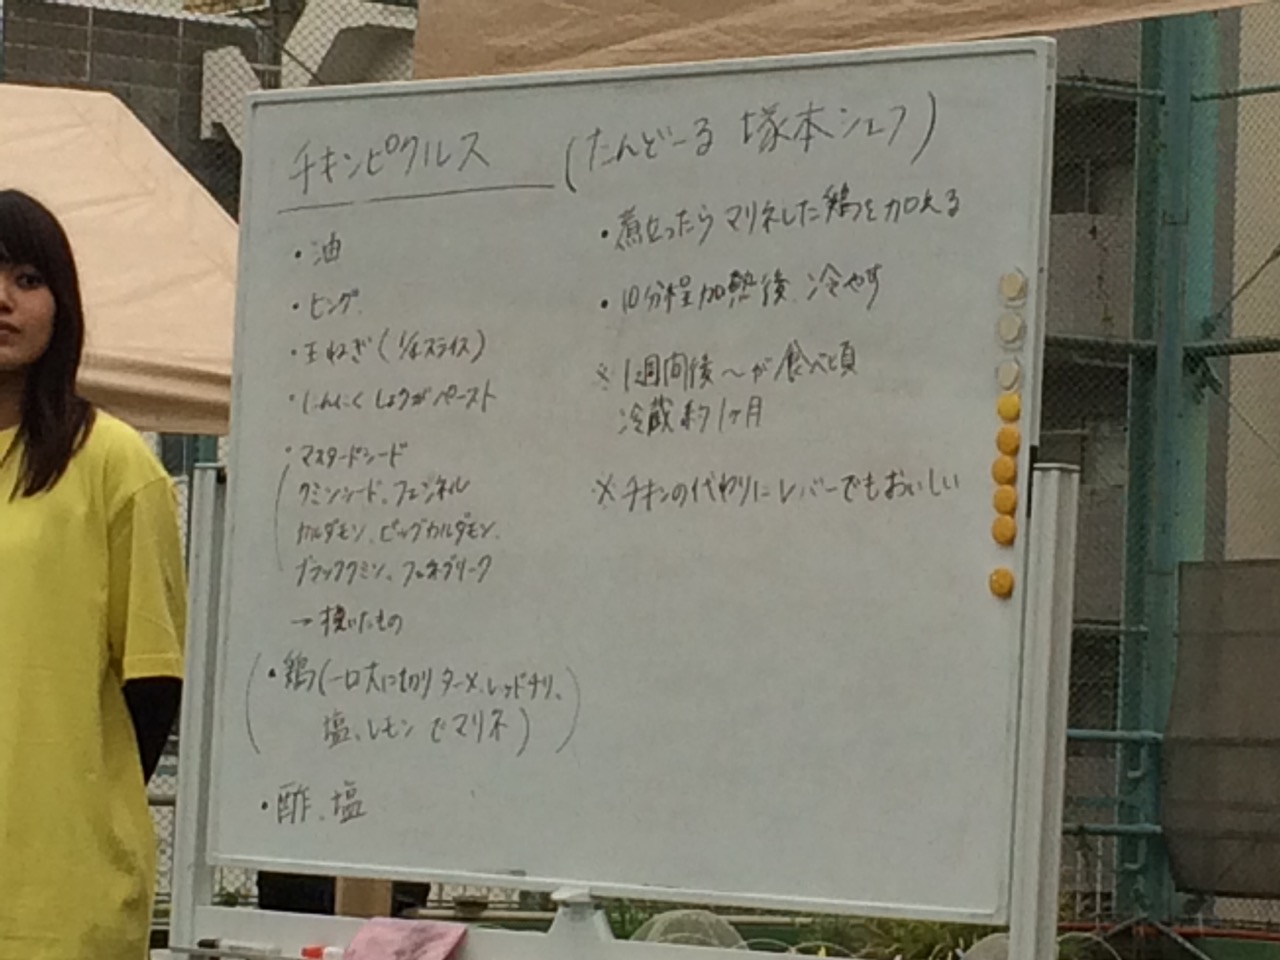 チキンピクルス (たんどーる 塚本シェフ)
・油
・ヒング.
・玉ねぎ(1/4スライス)
・にんにくしょうがペースト
・マスタードシード
クミンシード、フェンネル
カルダモン、ビッグカルダモン、
ブラッククミン、フェネグリーク
→挽いたもの
(・鶏(一口大に切りターメ、レッドチリ、
塩、レモンでマリネ))
・酢、塩
・煮立ったらマリネした鶏を加える
・10分程加熱後、冷やす
※1週間後〜が食べ頃
冷蔵約1ヶ月
※チキンの代わりにレバーでもおいしい